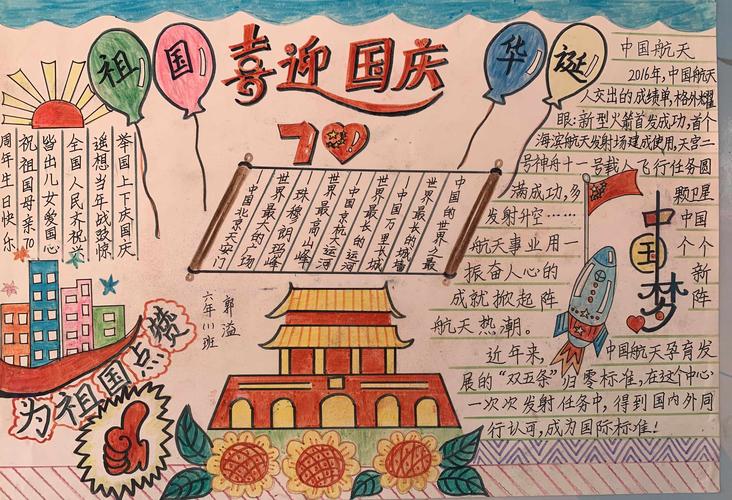 祖国
喜迎国庆
华诞
70!
举国上下庆国庆
遥想当年战鼓惊
全国人民
皆出儿女爱国心
祝祖国母亲70
周年生日快乐
中国的世界之最
世界最长的城墙
中国万里长城
世界最长的运河
中国京杭大运河
世界最高山峰
珠穆朗玛峰
世界最大的广场
中国北京天安门
郭溢
六年(1)班
为祖国点赞
中国航天
2016年,中国航天
人交出的成绩单,格外耀
眼:新型火箭首发成功,首个
海滨航天发射场建成使用,天宫二
号神舟十一号载人飞行任务圆
满成功,多颗卫星
发射升空……中国
航天事业用一个个
振奋人心的新
成就掀起阵阵
航天热潮。
近年来,中国航天孕育发
展的“双五条”归零标准,在这个中心
一次次发射任务中,得到国内外同
行认可,成为国际标准!
中国梦